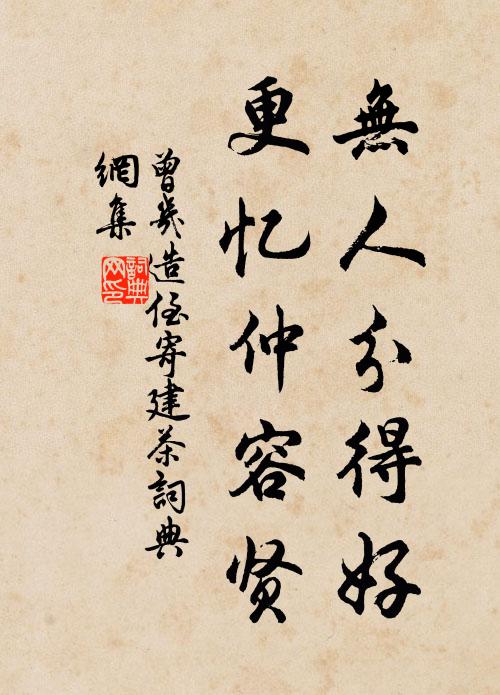 無人分得好
更忆仲容贤
曾幾造侄寄建茶詞典
網集
詞典網印